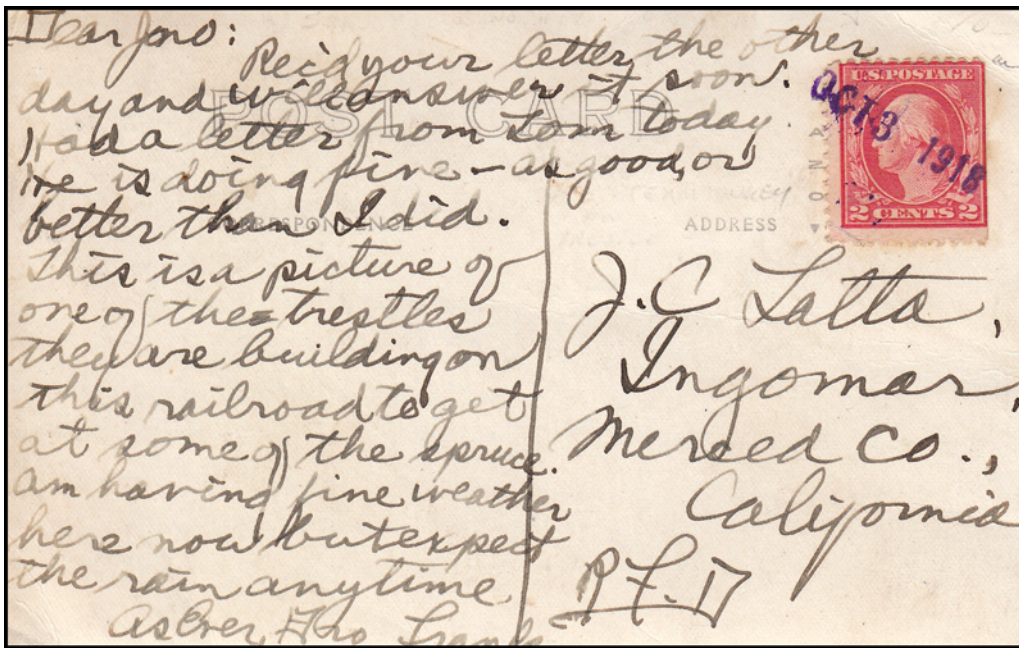 Dear Jno:
Rec'd your letter the other
day and will answer it soon.
Had a letter from Tom today
He is doing fine – as good, or
better than I did.
This is a picture of
one of the trestles
they are building on
this railroad to get
at some of the spruce.
Am having fine weather
here now but expect
the rain anytime
As Ever, Bro Frank
POST CARD
CORRESPONDENCE
ADDRESS
U.S. POSTAGE
2 CENTS 2
OCT 3 1918
J. C Latta,
Ingomar,
Merced Co.,
California
R F. D